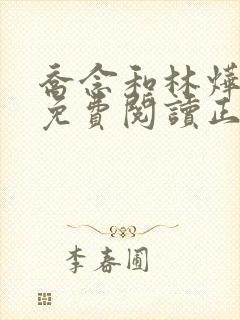 喬念和林燁
免費閱讀正
李春圃